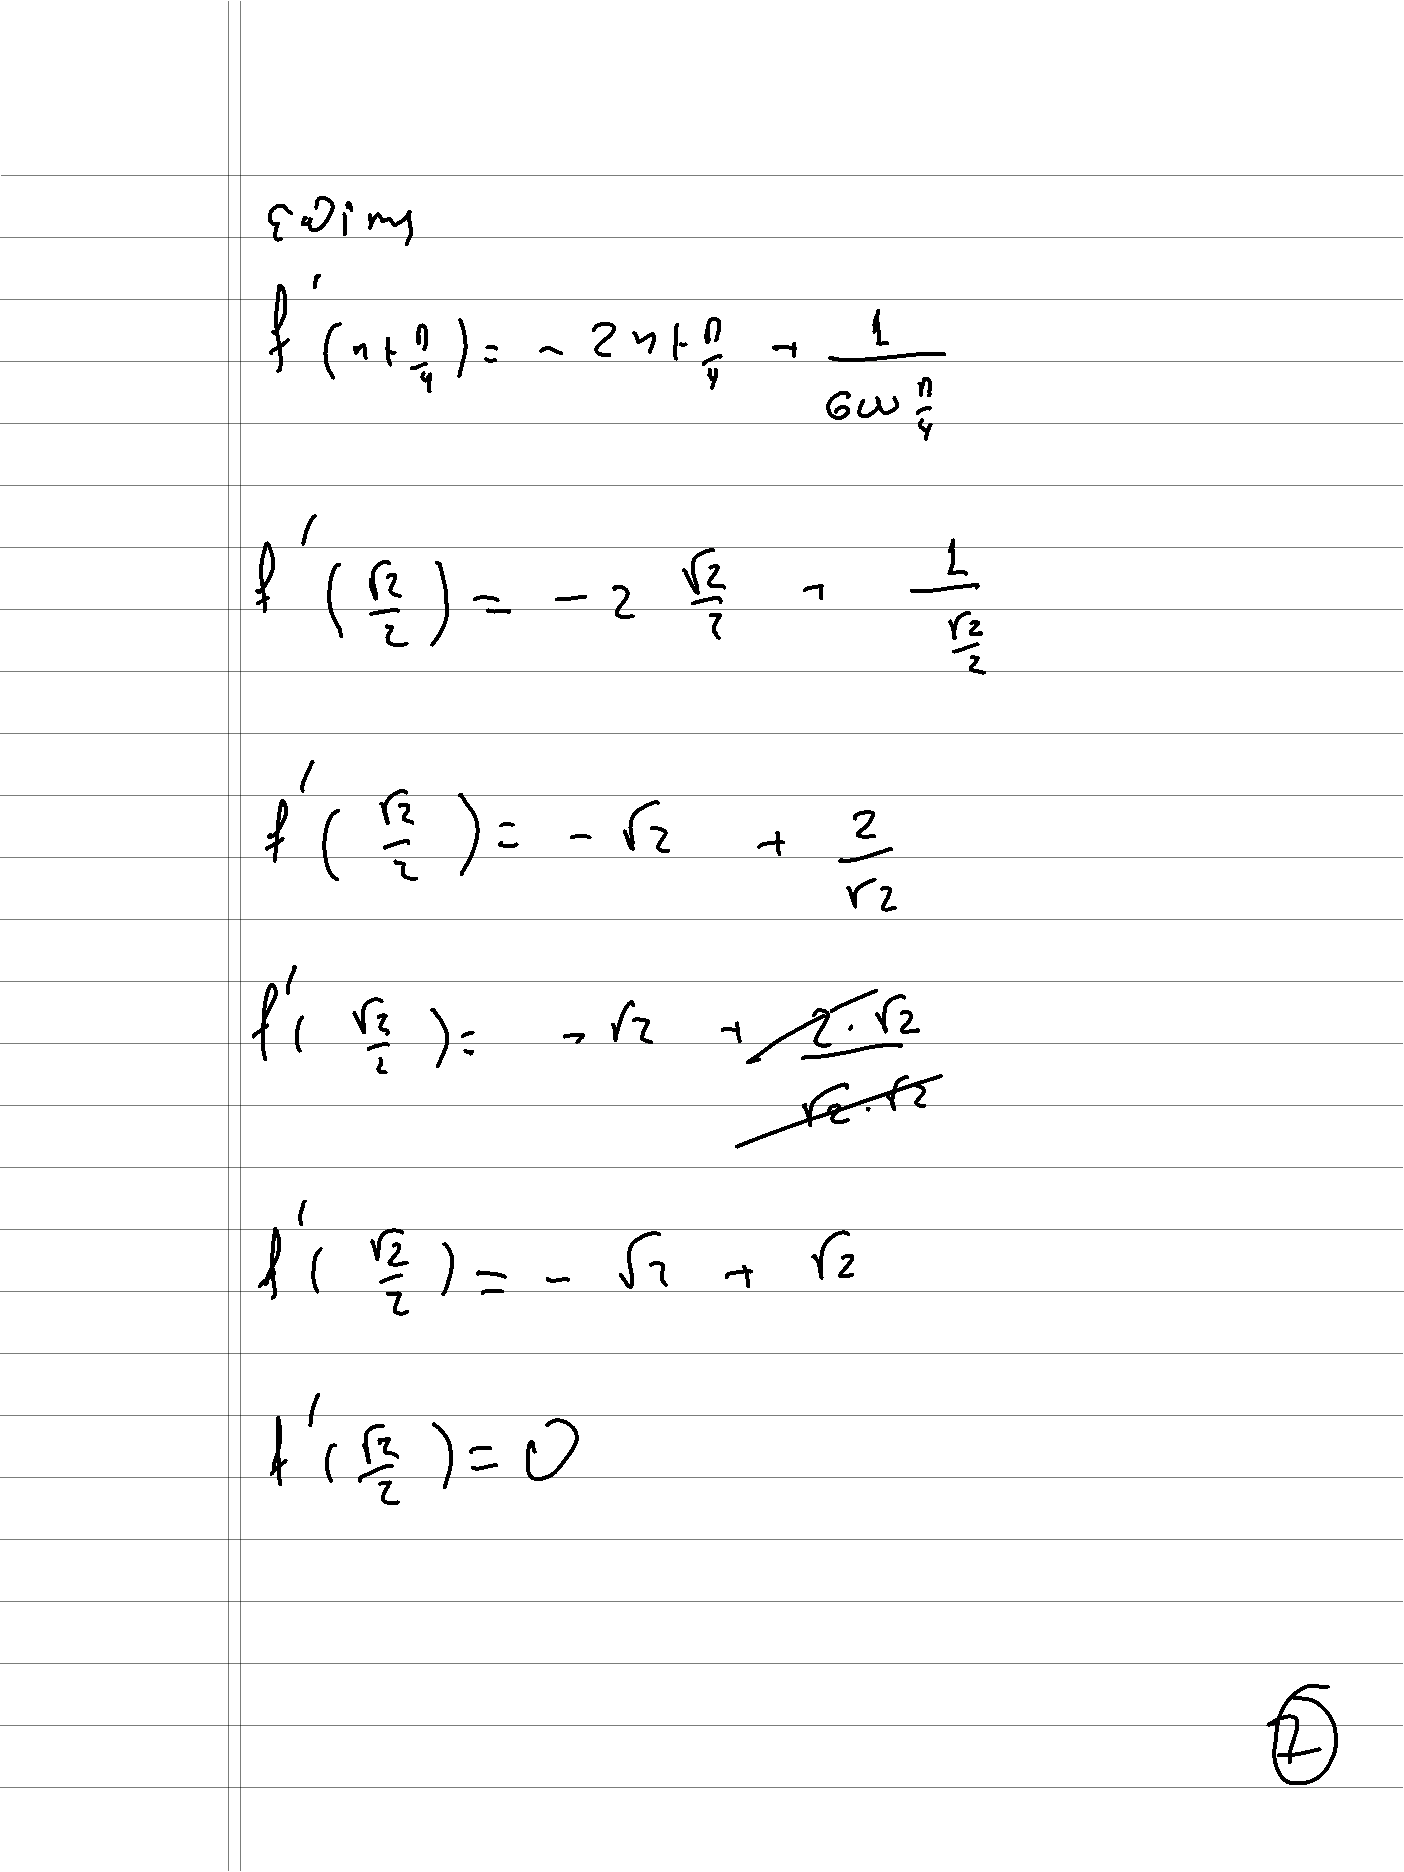 επίσης
f'(ημ π/4) = - 2 ημ π/4 + 1/(συν π/4)
f'(√2/2) = - 2 √2/2 + 1/(√2/2)
f'(√2/2) = - √2 + 2/√2
f'(√2/2) = - √2 + 2·√2/√2·√2
f'(√2/2) = - √2 + √2
f'(√2/2) = 0
2